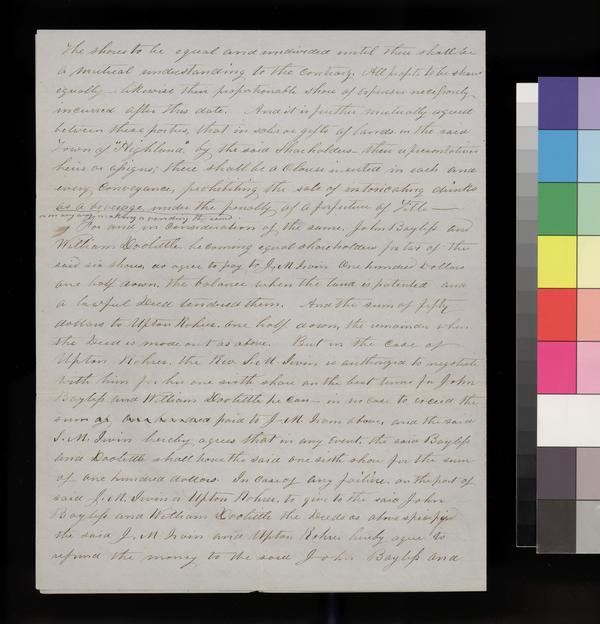 The shares to be equal and undivided until there shall be
a mutual understanding to the contrary. All profits to be shared
equally - likewise their proportionable share of expenses necessarily
incurred after this date. And it is further mutually agreed
between these parties, that in sales or gifts of lands in the said
Town of "Highland" by the said Shareholders their representatives
heirs or assigns, there shall be a Clause inserted in each and
every Conveyance, prohibiting the sale of intoxicating drinks
as a beverage under the penalty of a forfeiture of Title —
or in any way making or vending the same.
For and in consideration of the same, John Bayless and
William Doolittle becoming equal shareholders for two of the
said six shares, do agree to pay to S. M. Irvin One hundred Dollars
one half down, the balance when the land is patented and
a lawful Deed tendered them. And the sum of fifty
dollars to Upton Rohrer, one half down, the remainder when
the Deed is made out as above. But in the case of
Upton Rohrer, the Rev S. M. Irvin is authorized to negotiate
with him for his one sixth share on the best terms for John
Bayless and William Doolittle he can - in no case to exceed the
sum paid to S. M. Irvin above, and the said
S. M. Irvin hereby agrees that in any Event, the said Bayless
and Doolittle shall have the said one sixth share for the sum
of one hundred dollars. In case of any failure, on the part of
said S. M. Irvin or Upton Rohrer, to give to the said John
Bayless and William Doolittle the Deeds as above specified
the said S. M. Irvin and Upton Rohrer hereby agree to
refund the money to the said John Bayless and